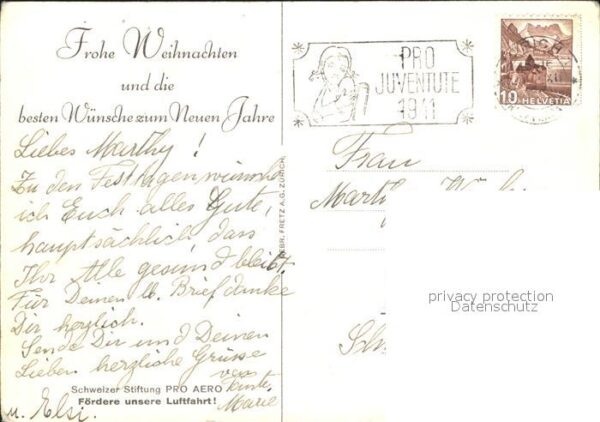 Frohe Weihnachten
und die
besten Wünsche zum Neuen Jahre
Liebes Marthy!
Zu den Festtagen wünsche
ich Euch alles Gute,
hauptsächlich dass
Ihr Alle gesund bleibt.
Für Deinen lb. Brief danke
Dir herzlich.
Sende Dir und Deinen
Lieben herzliche Grüsse
von Tante
Marie
u. Elsi.
Schweizer Stiftung PRO AERO
Fördere unsere Luftfahrt!
GEBR. FRETZ A.G. ZÜRICH
PRO
JUVENTUTE
1941
10 HELVETIA
Frau
privacy protection
Datenschutz